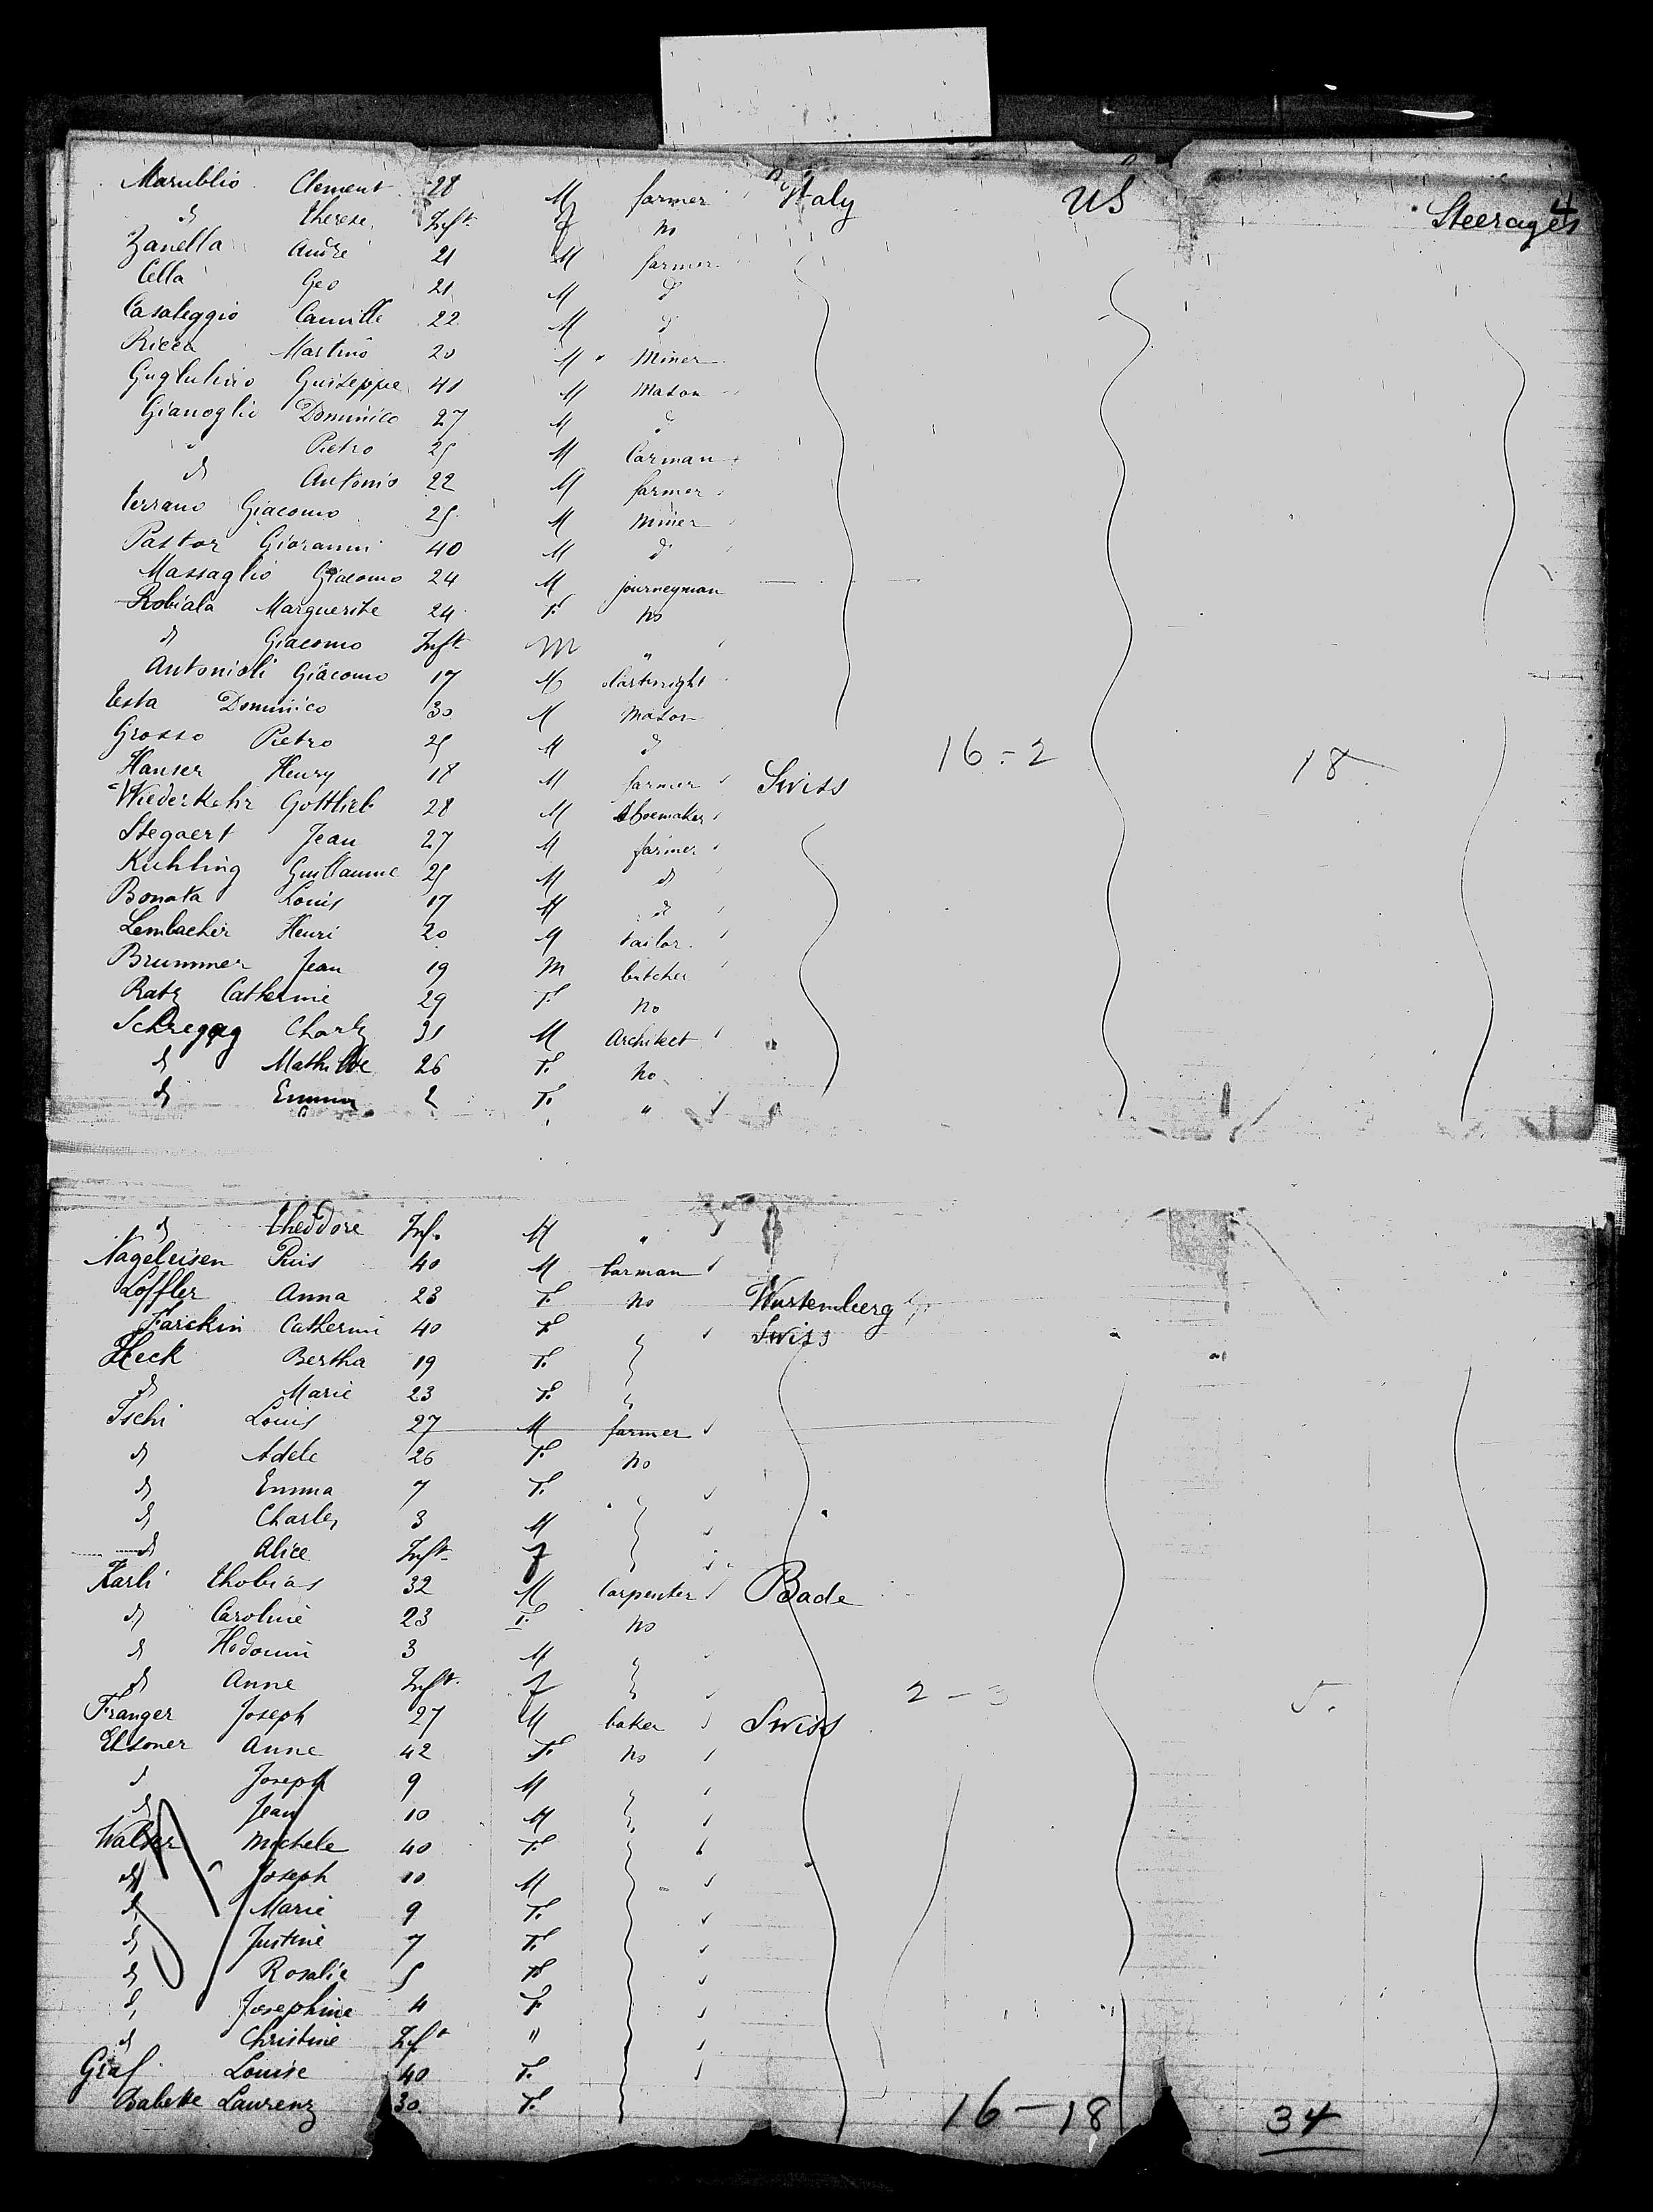 4
Marublio Clement 28 M farmer Italy US Steerages
d Therese Inft f no
Zanella André 21 M farmer
Cella Geo 21 M d
Casaleggio Camille 22 M d
Ricca Martino 20 M " Miner
Guglulino Guiseppe 41 M Mason
Gianoglio Dominico 27 M d
" Pietro 25 M Carman
d Antonio 22 M farmer
Terrano Giacomo 25 M Miner
Pastor Giovanni 40 M d
Massaglio Giacomo 24 M journeyman
Robiala Marguerite 24 F. no
d Giacomo Inft M "
Antonioli Giacomo 17 M Cartwright
Testa Dominico 30 M Mason
Grosso Pietro 25 M d 16-2 18
Hanser Henry 18 M farmer Swiss
Wiederkehr Gottlieb 28 M Shoemaker
Stegaert Jean 27 M farmer
Kuhling Guillaume 25 M d
Bonata Louis 17 M d
Lembacher Henri 20 M tailor
Brummer Jean 19 M butcher
Ratz Catherine 29 F. no
Schregag Charls 31 M Architect
d Mathilde 26 F. no
d Emma 2 F. "
d Theodore Inf. M "
Nageleisen Pius 40 M Carman
Loffler Anna 23 F. no Wurtemberg
Farckin Catherine 40 F Swiss
Heck Bertha 19 F.
d Marie 23 F.
Tschi Louis 27 M farmer
d Adele 26 F. no
d Emma 7 F.
d Charles 3 M
d Alice Inft f
Karli Thobias 32 M Carpenter Bade
d Caroline 23 F. no
d 3 M
d Anne Inft f 2-3 5.
Franger Joseph 27 M baker Swiss
Elsoner Anne 42 F. no
d Joseph 9 M
d Jean 10 M
Walser Michele 40 F.
d Joseph 10 M
d Marie 9 F.
d Justine 7 F.
d Rosalie 5 F
d Josephine 4 F
d Christine Inft "
Graf Louise 40 F.
Babette Laurenz 30 F. 16-18 34